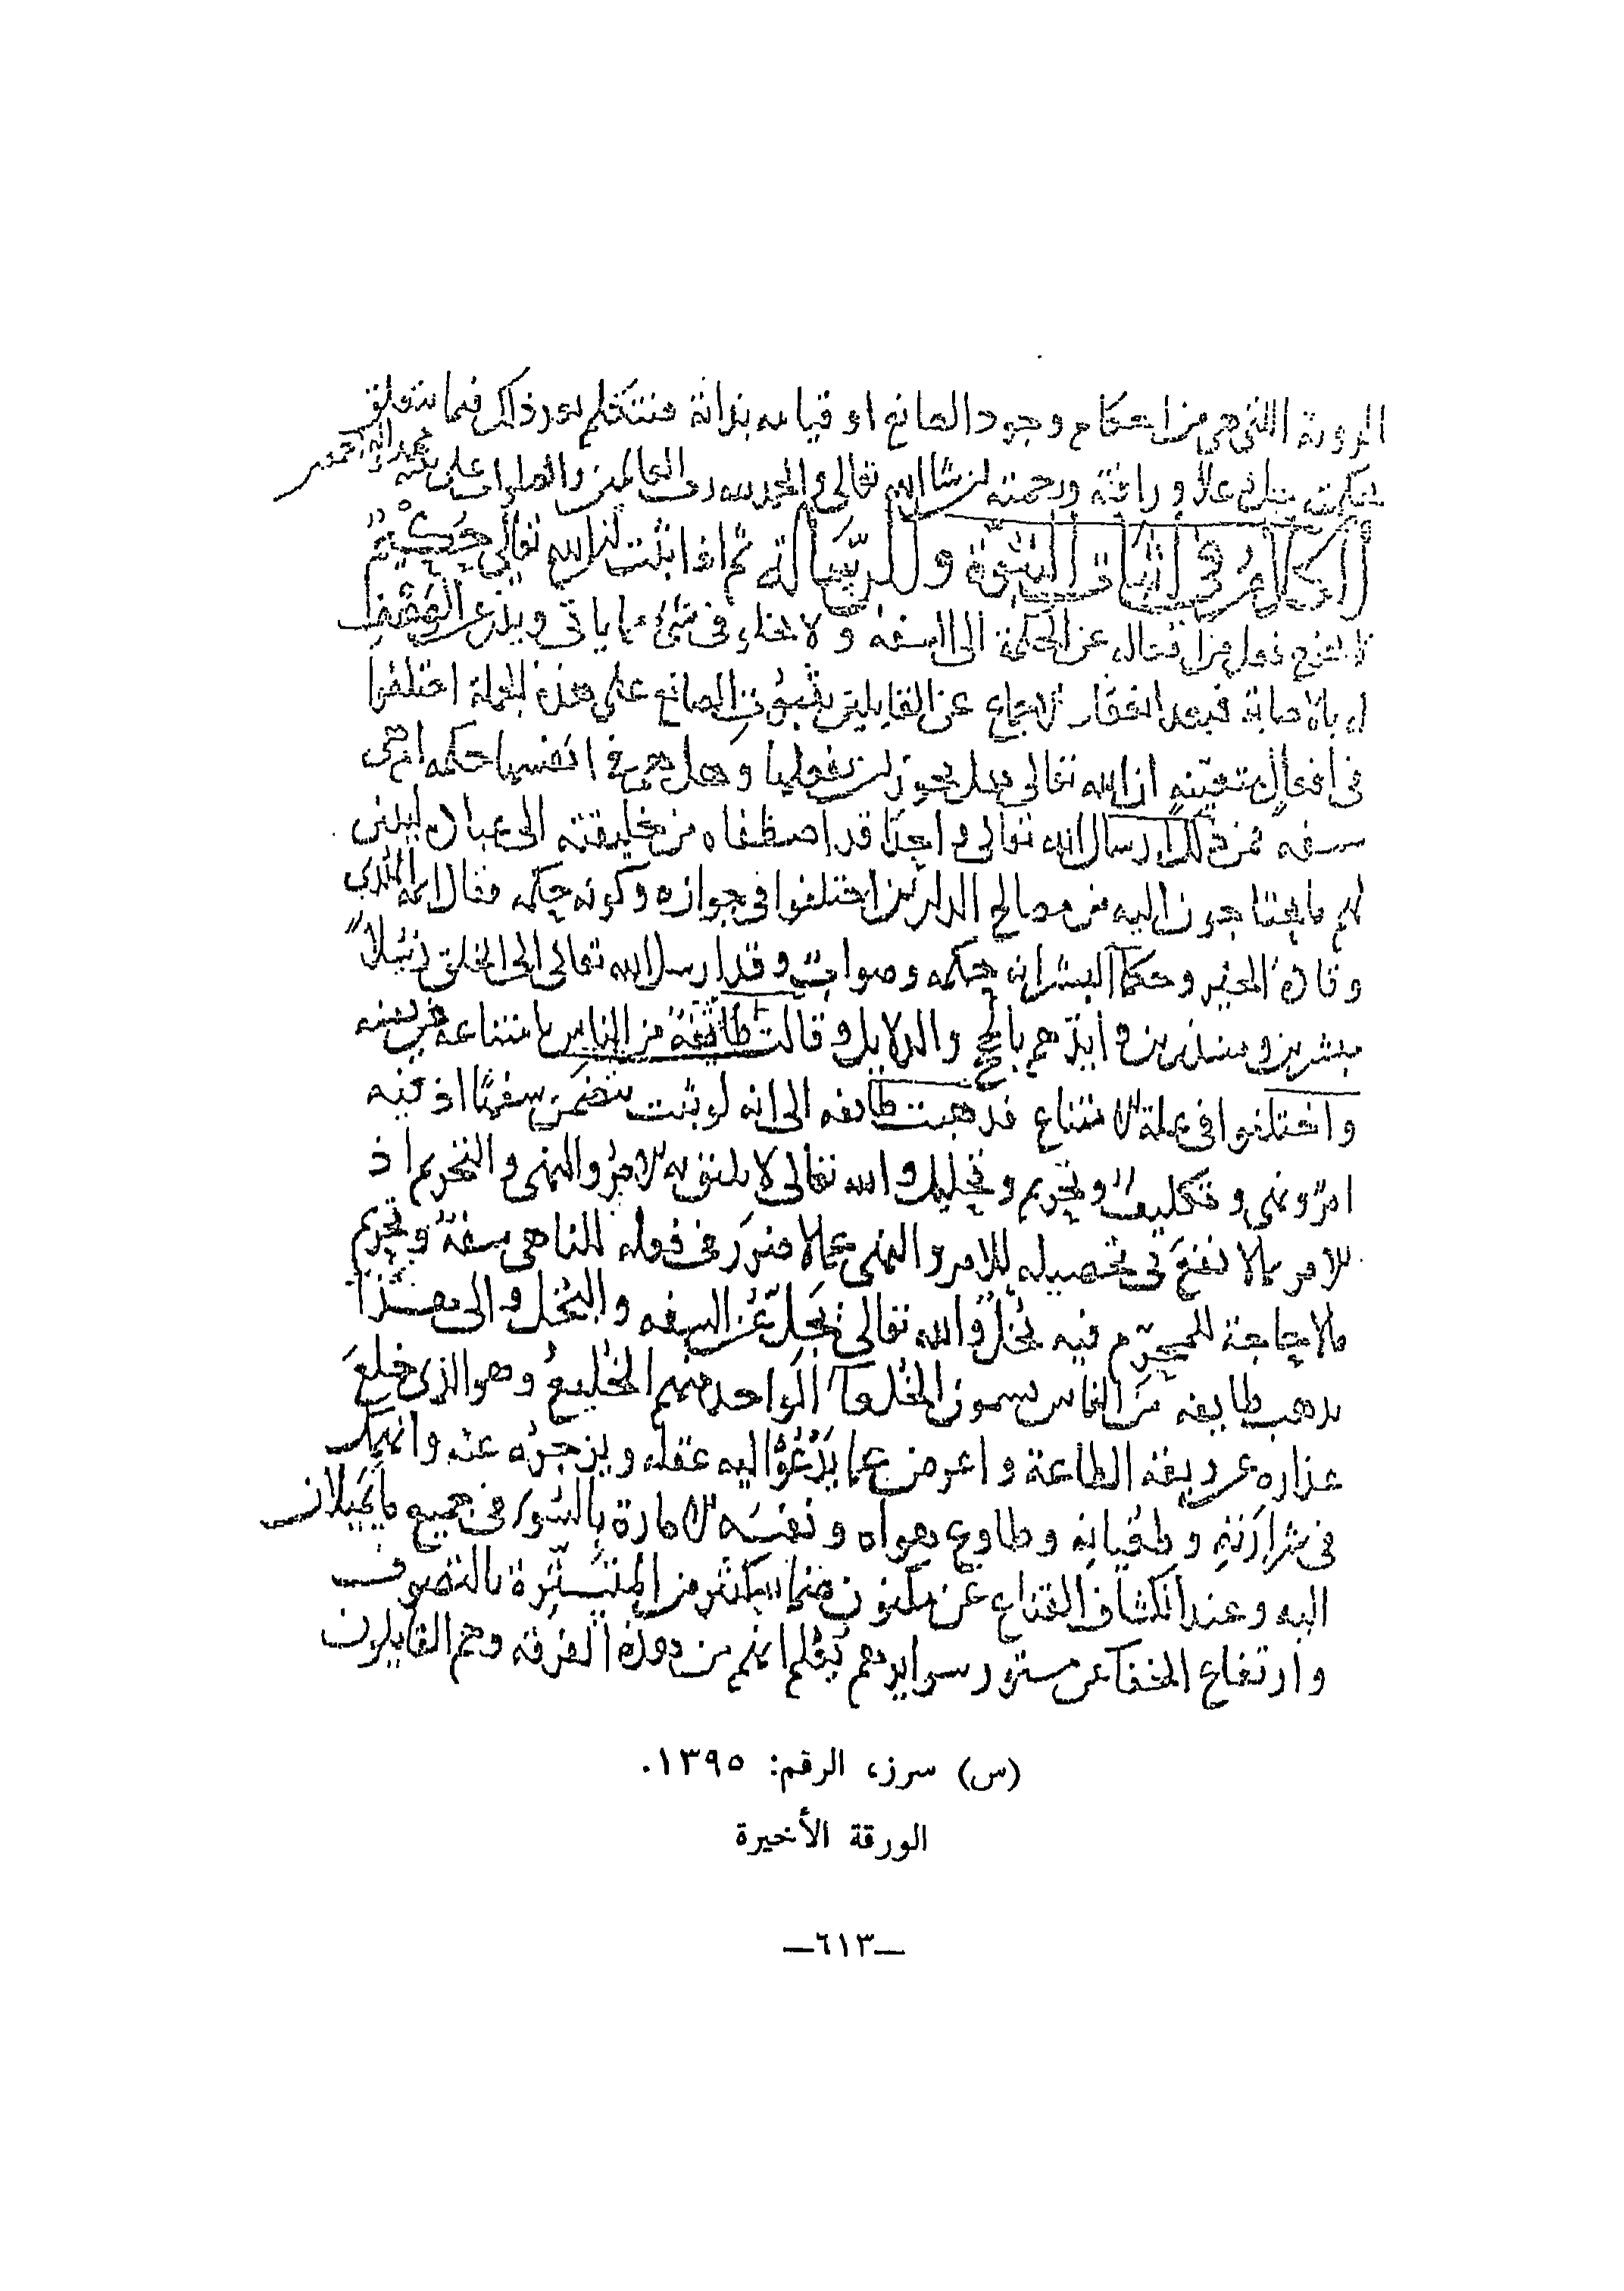 الروية اللتي هي من احكام وجود الصانع او قيامه بذاته فنتكلم بعد ذلك فيما يتعلق
بحكمته جل وعلا ورافته ورحمته ان شا الله تعالى والحمد لله رب العالمين والصلوات على نبيه محمد واله اجمعين
الكلام في اثبات النبوة والرسالة ثم اذا ثبت ان الله تعالى حكيم
لا يخرج فعل من افعاله عن الحكمة الى السفه ولا في شي مما ياتي ويذر عن
الاصابة فبعد انعقاد الاجماع عن القايلين بثبوت الصانع على هذه الجملة اختلفوا
في افعال متعينة ان الله تعالى هل يجوز ان يفعلها وهل هي في انفسها حكمه ام هي
سفه فمن ذلك ارسال الله تعالى واحدا قد اصطفاه من خليقته الى عباده ليبين
لهم ما يحتاجون اليه من مصالح الدارين اختلفوا في جوازه وكونه حكمه فقال ايمة الهدى
وقادة الخير وحكما البشر انه حكمه وصواب وقد ارسل الله تعالى الى الخلق رسلا
مبشرين ومنذرين وايدهم بالحجج والدلايل وقالت طائفة من الناس بامتناعه
واختلفوا في علة الامتناع فذهبت طايفه الى انه لو ثبت تضمن سفها اذ فيه
امر ونهي وتكليف وتحريم وتحليل والله تعالى لا يليق به الامر والنهي والتحريم اذ
الامر بما لا نفع في تحصيله للامر والنهي عما لا ضرر في فعله للناهي سفه وتحريم
ما لا حاجة للمحرم فيه بخل والله تعالى يجل عن السفه والبخل والى هذا
يذهب طايفه من الناس يسمون الخلعا الواحد منهم الخليع وهو الذي خلع
عذاره عن ربقة الطاعة واعرض عما يدعوا اليه عقله ويزجره عنه وانهمك
في شرارته وطغيانه وطاوع هواه ونفسه الامارة بالسوء في جميع ما يميلان
اليه وعند انكشاف القناع عن مكنون ضماير كثير من المتسترة بالتصوف
وارتفاع الخفا عن مستور سرايرهم يعلم انهم من هذه الفرقه وهم القايلون
(س) سرز، الرقم: ١٣٩٥.
الورقة الأخيرة
—٦١٣—